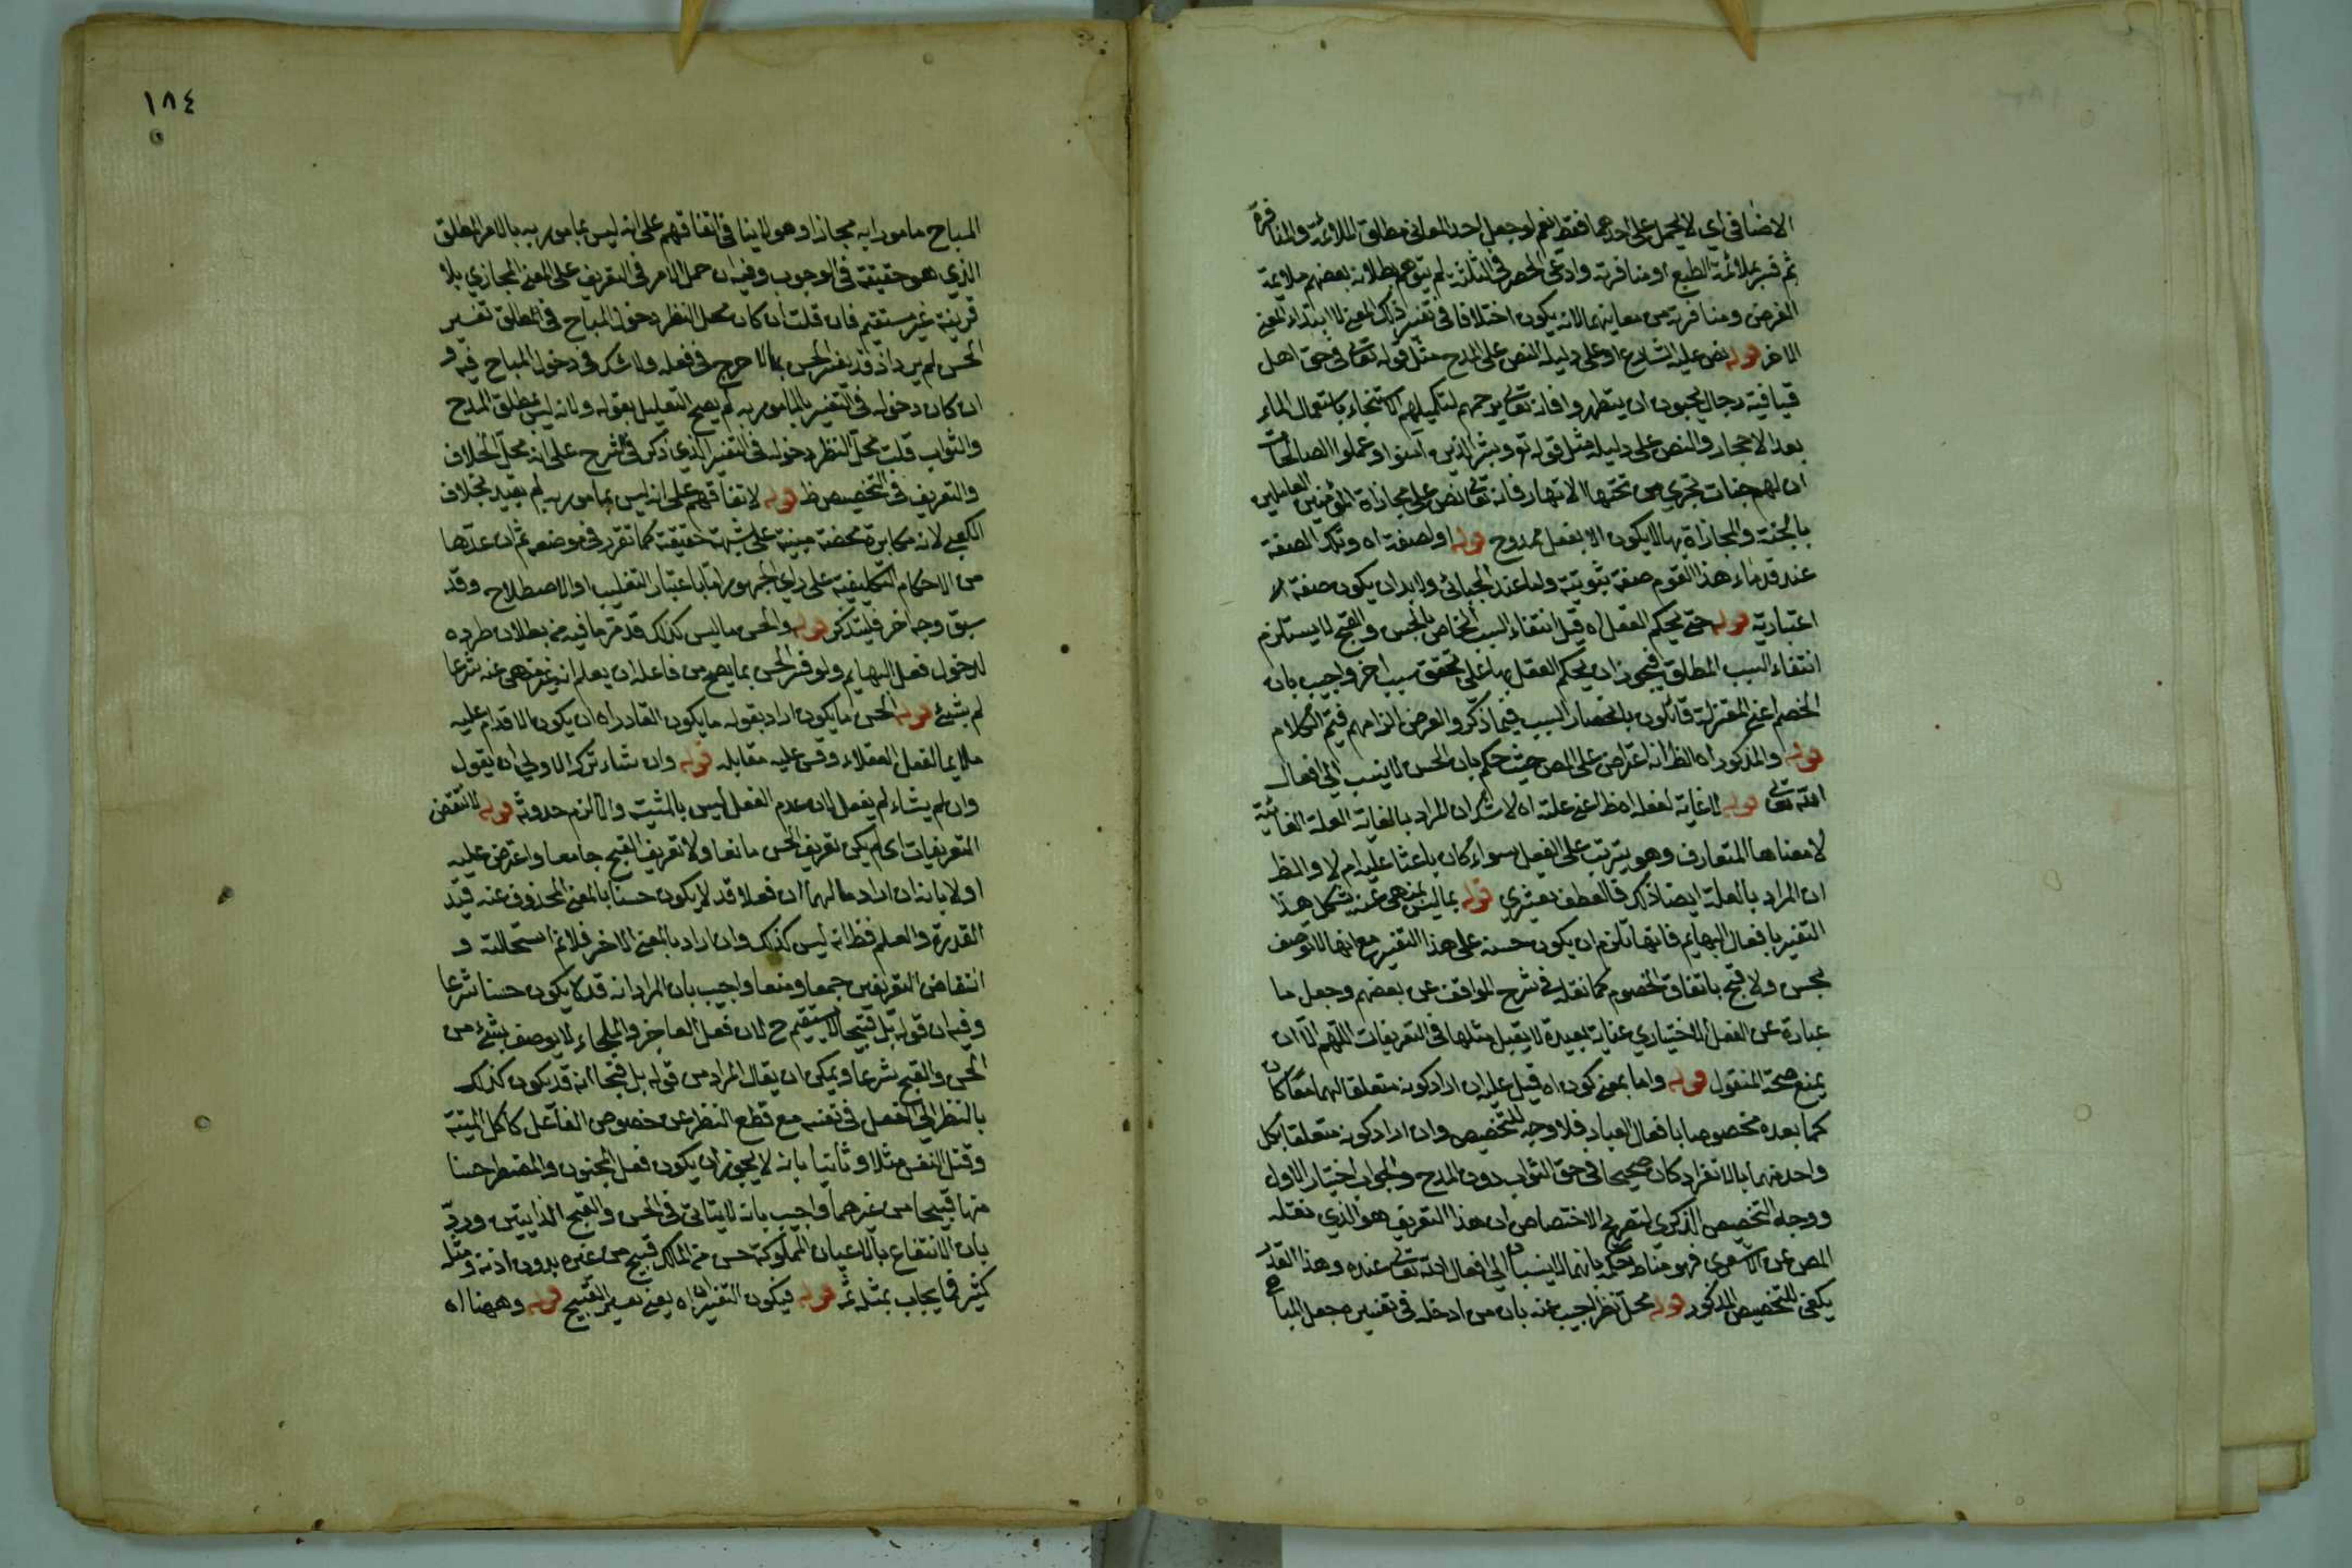 الاضافي اي لا يحمل على احدهما فقط نعم لو جعل احد المعاني مطلق الملائمة والمنافرة
ثم فسر بملائمة الطبع او منافرته وادعى الحصر في الثلثة لم يتوهم بطلانه بعضهم ملايمة
الغرض ومنافرته من معانيهما لانه يكون اختلافا في تفسير ذلك المعنى لا ابتداء لمعنى
اخر قوله نص عليه الشارع او على دليله النص على المدح مثل قوله تعالى في حق اهل
قبا فيه رجال يحبون ان يتطهروا فانه تعالى يرحمهم لتكميلهم الاستنجاء باستعمال الماء
بعد الاحجار والنص على دليله مثل قوله تع وبشر الذين آمنوا وعملوا الصالحات
ان لهم جنات تجري من تحتها الانهار فانه تعالى نص على مجازاة المؤمنين العاملين
بالجنة والمجازاة بها لا يكون الا بفعل ممدوح قوله او لصفة اه وتلك الصفة
عند قدماء هذا القوم صفة ثبوتية واما عند الجبائي ولا بد ان يكون صفة
اعتبارية قوله حتى يحكم العقل اه قيل انتفاء السبب الخاص بالحسن والقبح لا يستلزم
انتفاء السبب المطلق فيجوز ان يحكم العقل بها على تحقق سبب اخر واجيب بان
الخصم اعني المعتزلة قائلون بانحصار السبب فيما ذكر والغرض الزامهم فيتم الكلام
قوله والمذكور اه الظ انه اعتراض على المص حيث حكم بان الحسن لا ينسب الى افعال
الله تعالى قوله لا غاية لفعله اه ظ اعني علته اه لا شك ان المراد بالغاية العلة الغائية
لا معناها المتعارف وهو يترتب على الفعل سواء كان باعثا عليه ام لا والظ
ان المراد بالعلة ايضا ذلك فالعطف تفسيري قوله بما ليس بمنهي عنه يشكل هذا
التفسير بافعال البهايم فانها تلزم ان يكون حسنة على هذا التفسير مع انها لا توصف
بحسن ولا قبح باتفاق الخصوم كما نقله في شرح المواقف عن بعضهم وجعل ما
عبارة عن الفعل الاختياري عناية بعيدة لا يقبل مثلها في التعريفات اللهم الا ان
يمنع صحة المنقول قوله واما بمعنى كون اه قيل عليه ان اراد كونه متعلقا لهما معا كان
كما بعده مخصوصا بافعال العباد فلا وجه للتخصيص وان اراد كونه متعلقا بكل
واحد منهما بالانفراد كان صحيحا في حق الثواب دون المدح والجواب اختيار الاول
ووجه التخصيص الذكري لتصريح الاختصاص ان هذا التعريف هو الذي نقله
المص عن الاشعري فهو مناط حكمه بانهما لا ينسبان الى افعال الله تعالى عنده وهذا القدر
يكفي للتخصيص المذكور قوله محل نظر اجيب عنه بان من ادخله في تفسيره جعل المباح
١٨٤
المباح مامورا به مجازا وهو لا ينافي اتفاقهم على انه ليس بمامور به بالامر المطلق
الذي هو حقيقة في الوجوب وفيه ان حمل الامر في التعريف على المعنى المجازي بلا
قرينة غير مستقيم فان قلت ان كان محل النظر دخول المباح في مطلق تفسير
الحسن لم يرد اذ قد يفسر الحسن بما لا حرج في فعله ولا شك في دخول المباح فيه و
ان كان دخوله في التفسير بالمامور به لم يصح التعليل بقوله ولانه ليس مطلق المدح
والثواب قلت محل النظر دخوله في التفسير الذي ذكر في الشرح على انه محل الخلاف
والتعريف في التخصيص ظ قوله لاتفاقهم على انه ليس بمامور به لم يعتد بخلاف
الكعبي لانه مكابرة محضة مبنية على شبهة حقيقة كما تقرر في موضعه ثم ان عدها
من الاحكام التكليفية على راي الجمهور اما باعتبار التغليب او الاصطلاح وقد
سبق وجه اخر فليتذكر قوله والحسن ما ليس كذلك قد مر ما فيه من بطلان طرده
لدخول فعل البهايم ولو فسر الحسن بما يصح من فاعله ان يعلم انه غير منهي عنه شرعا
لم بشيء قوله الحسن ما يكون اراد بقوله ما يكون القادر اه ان يكون الاقدام عليه
ملايما لفعل العقلاء وقس عليه مقابله قوله وان شاء ترك الاولى ان يقول
وان لم يشاء لم يفعل لان عدم الفعل ليس بالمشيّة والا لزم حدوثه قوله لانتقض
التعريفات اي لم يكن تعريف الحسن مانعا ولا تعريف القبح جامعا واعترض عليه
اولا بانه ان اراد مما لهما ان فعلا قد لا يكون حسنا بالمعنى المحذوف عنه قيد
القدرة والعلم فظ انه ليس كذلك وان اراد بالمعنى الاخر فلا نم استحالته و
انتقاض التعريفين جمعا ومنعا واجيب بان المراد انه قد لا يكون حسنا شرعا
وفيه ان قوله بل قبيحا لا يستقيم ح لان فعل العاجز والملجاء لا يوصف بشيء من
الحسن والقبح شرعا ويمكن ان يقال المراد من قوله بل قبيحا انه قد يكون كذلك
بالنظر الى الفعل في نفسه مع قطع النظر عن خصوص الفاعل كاكل الميتة
وقتل النفس مثلا وثانيا بانه لا يجوز ان يكون فعل المجنون والمضطر حسنا
منها قبيحا من غيرهما واجيب بانه لا يتاتى في الحسن والقبح الذاتيين ورد
بان الانتفاع بالاعيان المملوكة حسن من المالك قبيح من غيره بدون اذنه ومثله
كثير فما يجاب بمثله ثمه قوله فيكون التفسيران اه يعني تفسير القبيح قوله وههنا اه